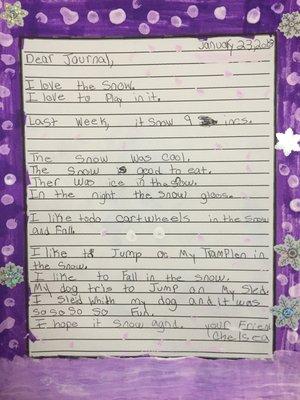 January 23, 20
Dear Journal,
I love the snow.
I love to Play in it.
Last week, it snow 9 incs.
The snow was cool.
The snow is good to eat.
Ther was ice in the snow.
In the night the snow gloos.
I like todo cartwheels in the snow
and Fall.
I like to Jump on My Tramplen in
the snow.
I like to Fall in the snow.
My dog tris to Jump on My sled.
I sled whith my dog and it was
so so so so Fun.
I hope it snow agnd. your Friend
Chelsea